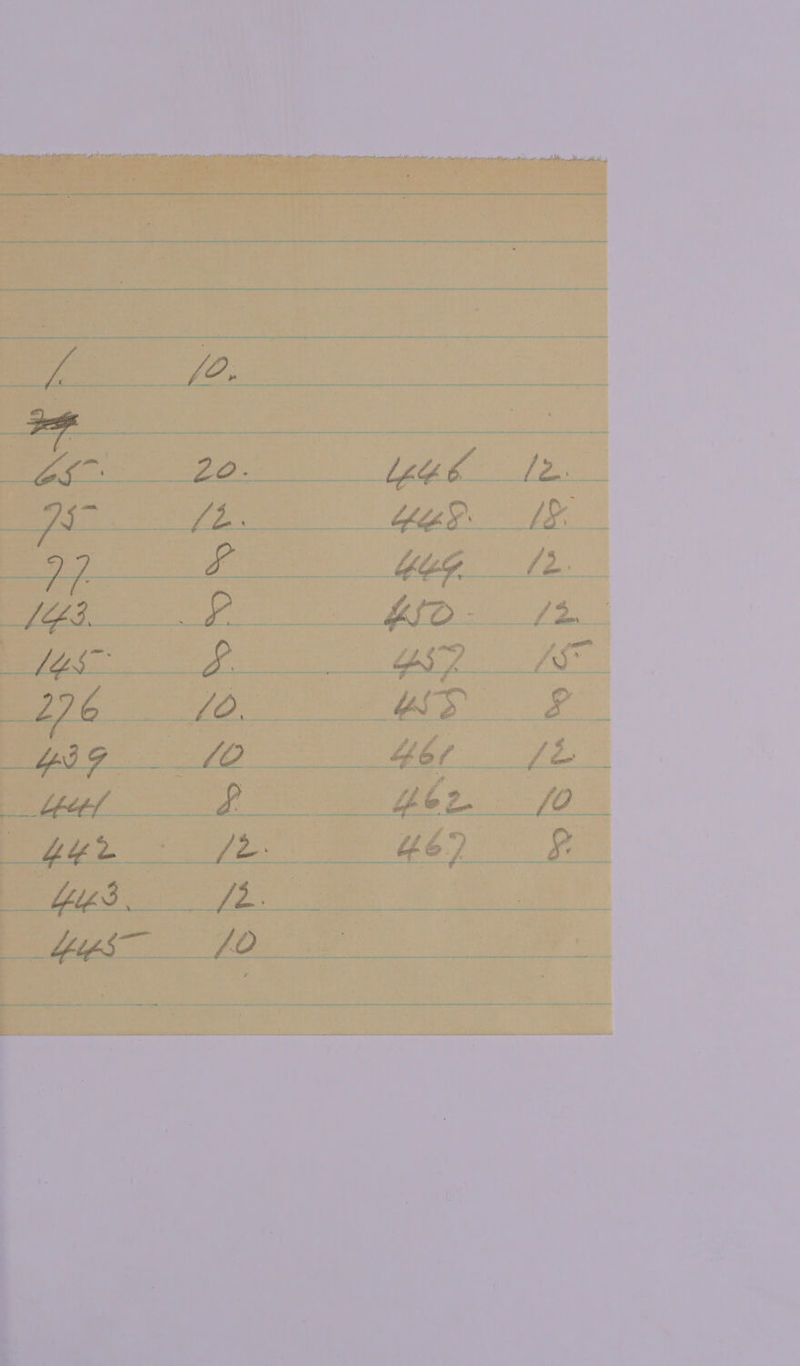 1. 10.
65. 20. 446 12.
75 12. 448. 18.
77 8 449. 12.
143. 8. 450 - 12.
145. 8. 457 15
276 10. 458 8
439 10 461 12
441 8. 462 10
442 12. 467 8.
443. 12.
445 10